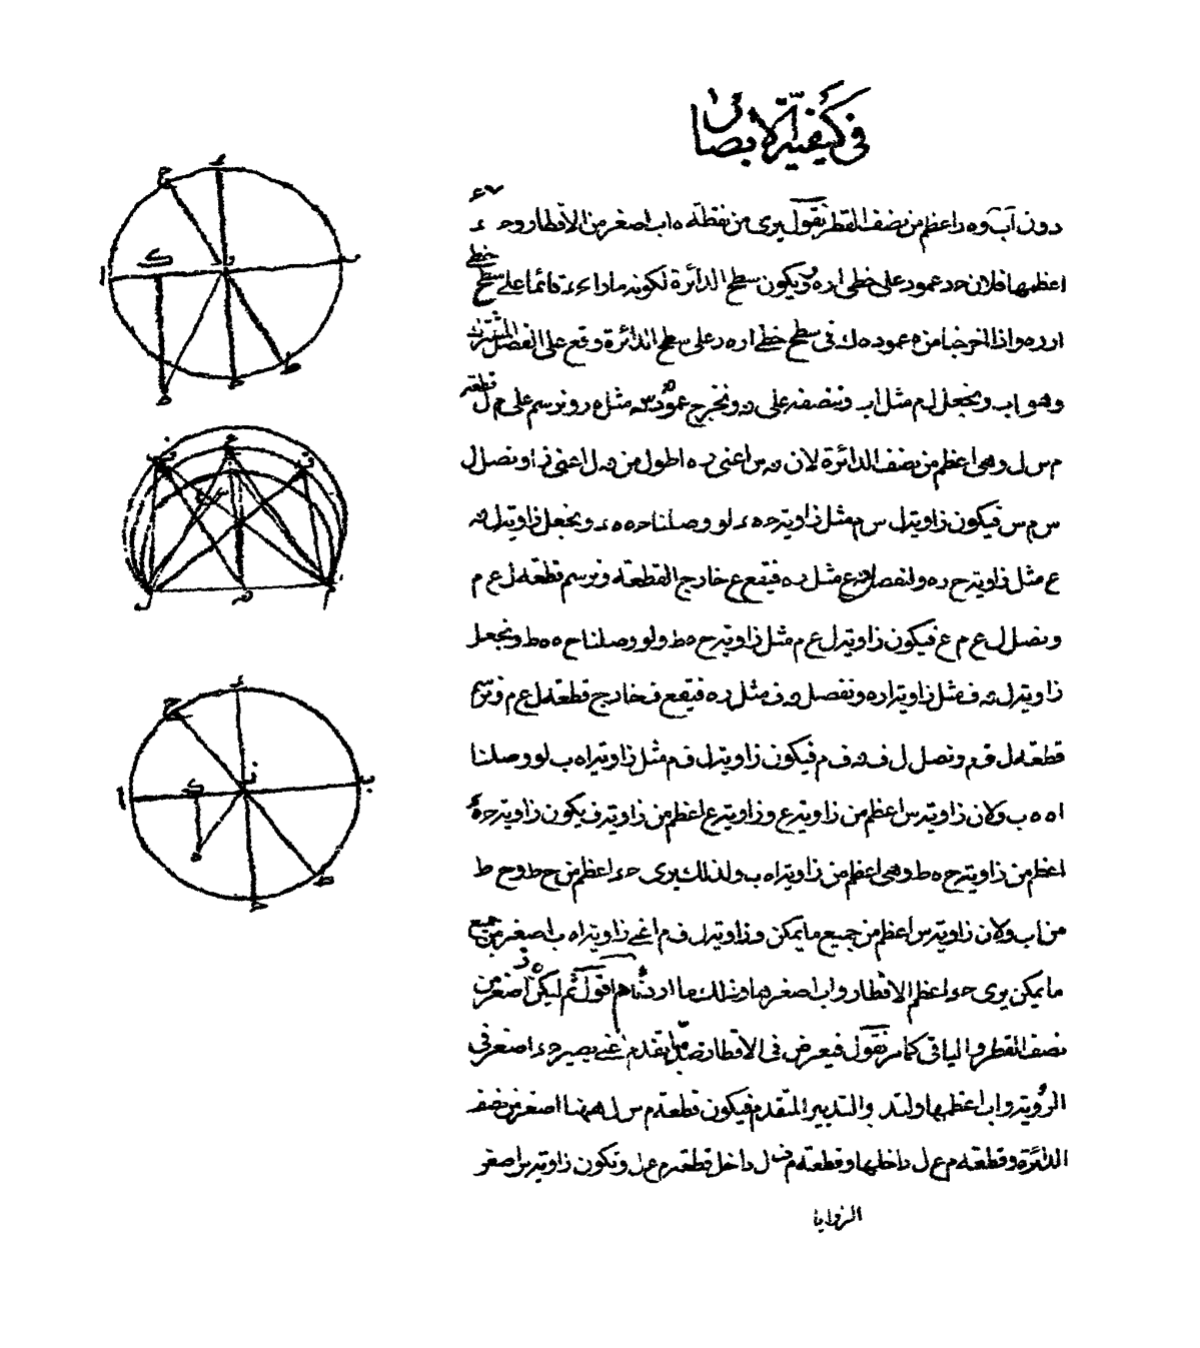 في كيفية الابصار
دون آب وه ر اعظم من نصف القطر نقول يرى من نقطة ه اب اصغر من الاقطار و ح ء
اعظمها فلان ح د عمود على خطي ا ر ه ويكون سطح الدائرة لكونه مارا قائما على سطح خطي
ا ر ه واذا اخرجنا من ه عمود ه ك في سطح خطي ا ر ه ر على سطح الدائرة وقع على الفصل المشترك
وهو اب ونجعل ل م مثل اب وننصفه على ن ونخرج عمود ن س مثل ه ر ونرسم على م ل قطعة
م س ل وهي اعظم من نصف الدائرة لان ن س اعني ر ه اطول من ن ل اعني ر ا ونصل ل
س م س فيكون زاوية ل س م مثل زاوية ح ه ء لو وصلنا ح ه ه ء ونجعل زاوية ل ن
ع مثل زاوية ح ر ه ونفصل ن ع مثل ر ه فيقع ع خارج القطعة ونرسم قطعة ل ع م
ونصل ل ع م ع فيكون زاوية ل ع م مثل زاوية ح ه ط ولو وصلنا ح ه ه ط ونجعل
زاوية ل ن ف مثل زاوية ا ر ه ونفصل ن ف مثل ر ه فيقع ف خارج قطعة ل ع م ونرسم
قطعة ل ف م ونصل ل ف ن ف م فيكون زاوية ل ف م مثل زاوية ا ه ب لو وصلنا
ا ه ه ب ولان زاوية س اعظم من زاوية ع وزاوية ع اعظم من زاوية ف يكون زاوية ح ه ء
اعظم من زاوية ح ه ط وهي اعظم من زاوية ا ه ب ولذلك يرى ح ء اعظم من ح ط و ح ط
من اب ولان زاوية س اعظم من جميع ما يمكن وزاوية ل ف م اعني زاوية ا ه ب اصغر من جميع
ما يمكن يرى ح ء اعظم الاقطار و اب اصغرها وذلك ما اردناه اقول ثم ليكن ه ر اصغر من
نصف القطر والباقي كما مر نقول فيعرض في الاقطار ضد ما تقدم اعني يصير ح ء اصغر في
الرؤية و اب اعظمها ولتدبر والتدبير المتقدم فيكون قطعة م س ل ههنا اصغر من نصف
الدائرة وقطعة م ع ل داخلها وقطعة م ف ل داخل قطعة م ع ل وتكون زاوية س اصغر
الزوايا